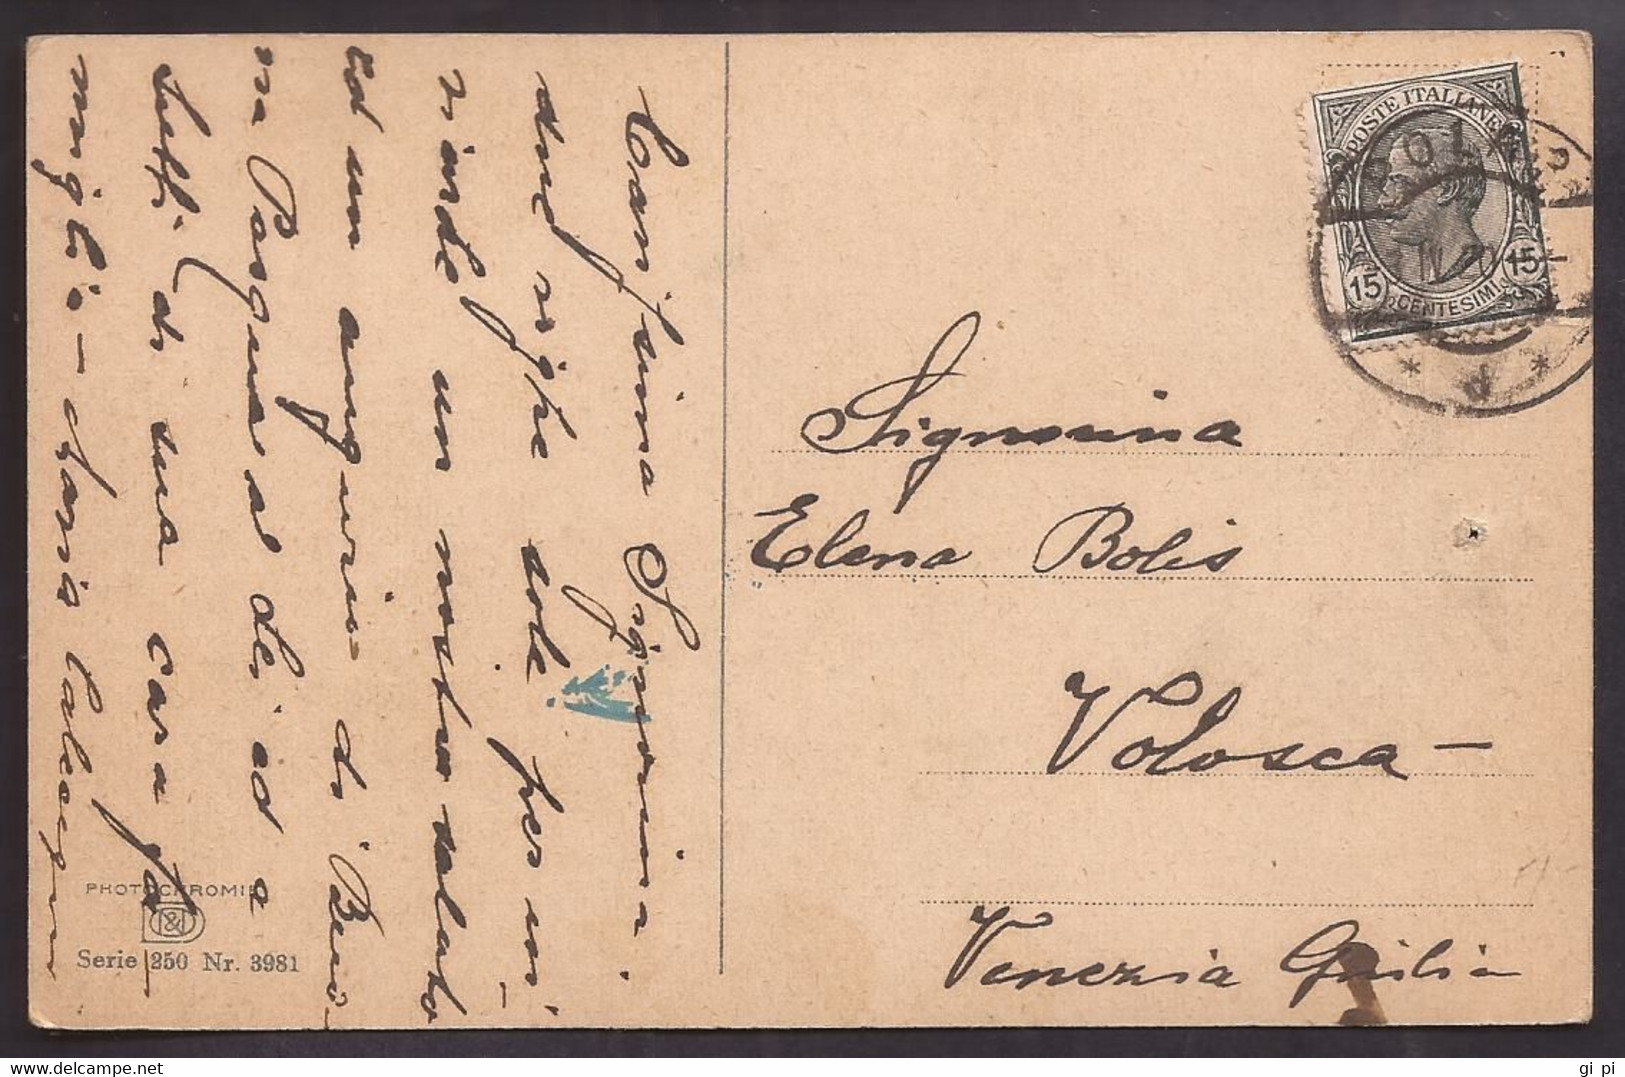 Carissima Signorina
due righe sole per in-
viarle un nostro saluto
ed un augurio di Buo
na Pasqua a lei ed a
tutti di sua cara fa-
miglia - Maria
PHOTOCHROMIE
Serie 250 Nr. 3981
POSTE ITALIANE
15 CENTESIMI 15
IV 20
Signorina
Elena Bolis
Volosca -
Venezia Giulia
delcampe.net
gi pi